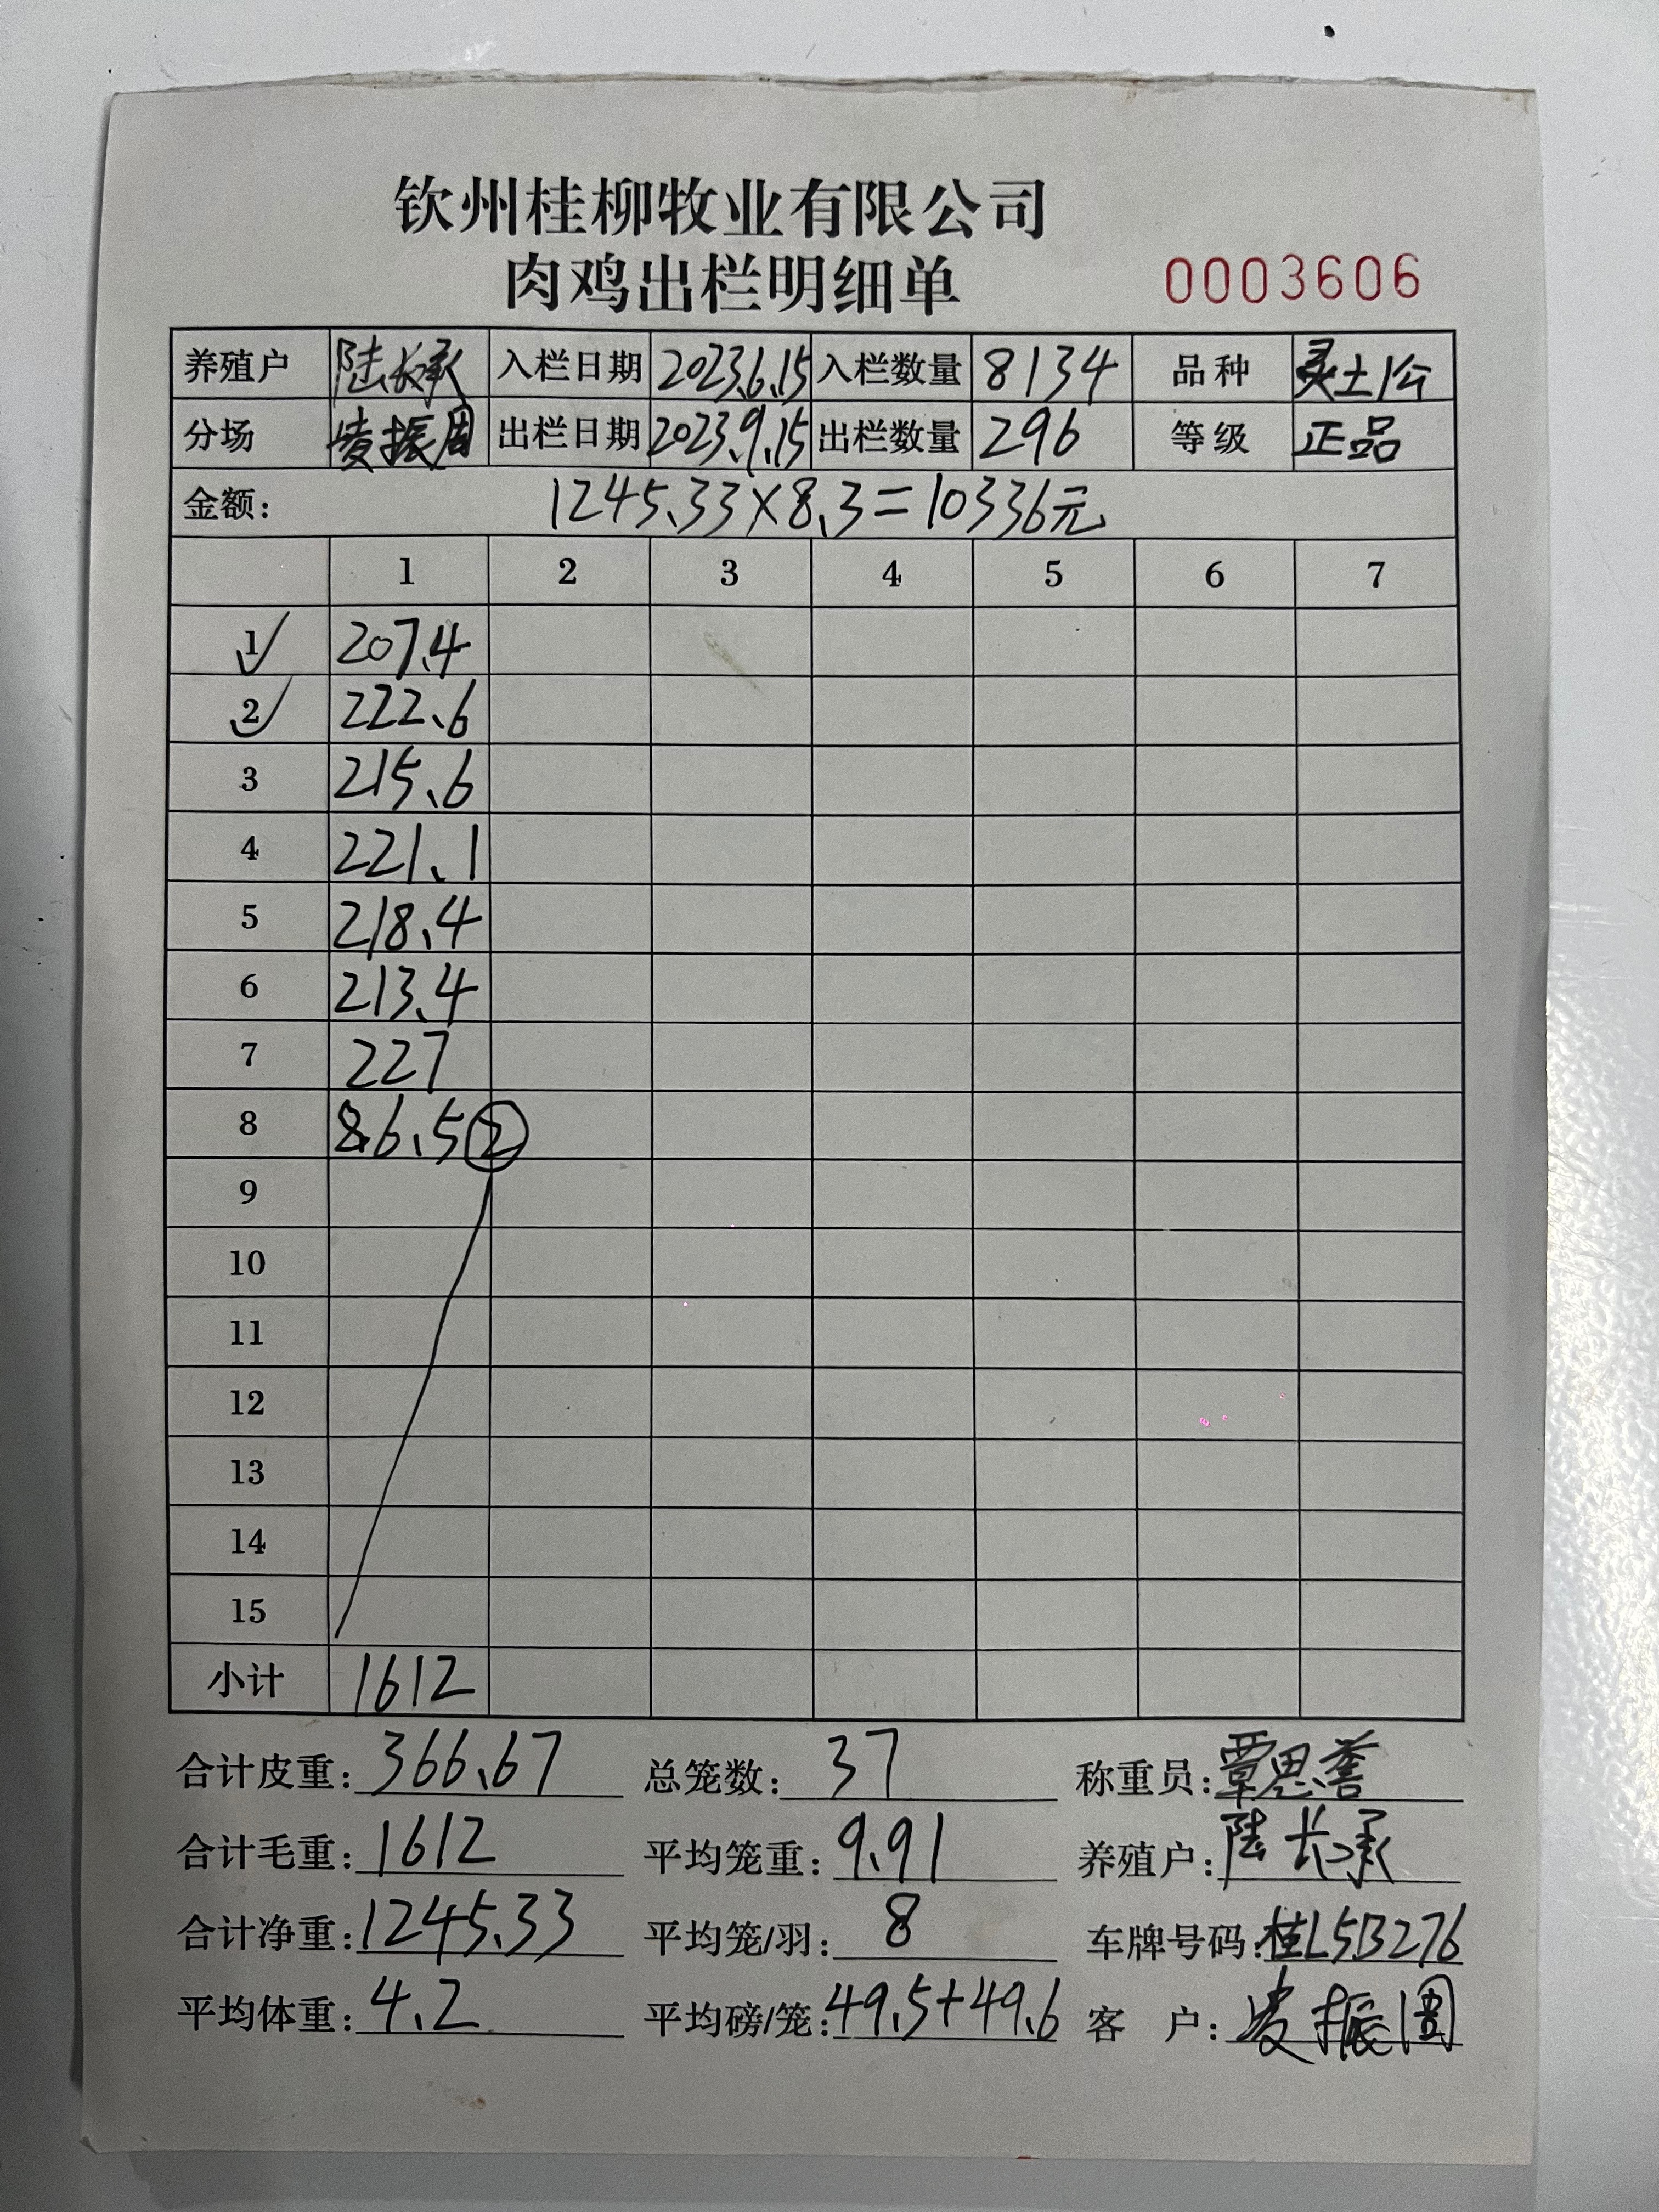 钦州桂柳牧业有限公司
肉鸡出栏明细单
0003606
养殖户 陆长承 入栏日期 2023.6.15 入栏数量 8134 品种 灵土1公
分场 凌振周 出栏日期 2023.9.15 出栏数量 296 等级 正品
金额: 1245.33×8.3=10336元
1 2 3 4 5 6 7
1✓ 207.4
2✓ 222.6
3 215.6
4 221.1
5 218.4
6 213.4
7 227
8 86.5②
9
10
11
12
13
14
15
小计 1612
合计皮重: 366.67 总笼数: 37 称重员: 覃思誉
合计毛重: 1612 平均笼重: 9.91 养殖户: 陆长承
合计净重: 1245.33 平均笼/羽: 8 车牌号码: 桂L5B276
平均体重: 4.2 平均磅/笼: 49.5+49.6 客 户: 凌振周